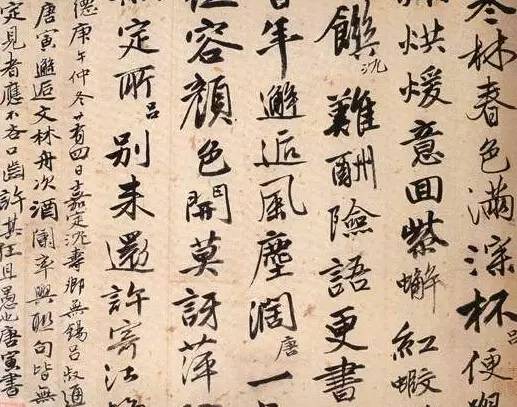 林春色滿深杯呂便
烘煖意回紫蠏紅蝦
饌沈難酬險語更書
年邂逅風塵濶唐一
容顔色開莫訝萍
定所呂別来還許寄江
德庚午仲冬廿有四日嘉定沈壽卿無錫呂叔通
唐寅邂逅文林舟次酒闌率興聯句皆無
定見者應不吝口齒許其狂且愚也唐寅書